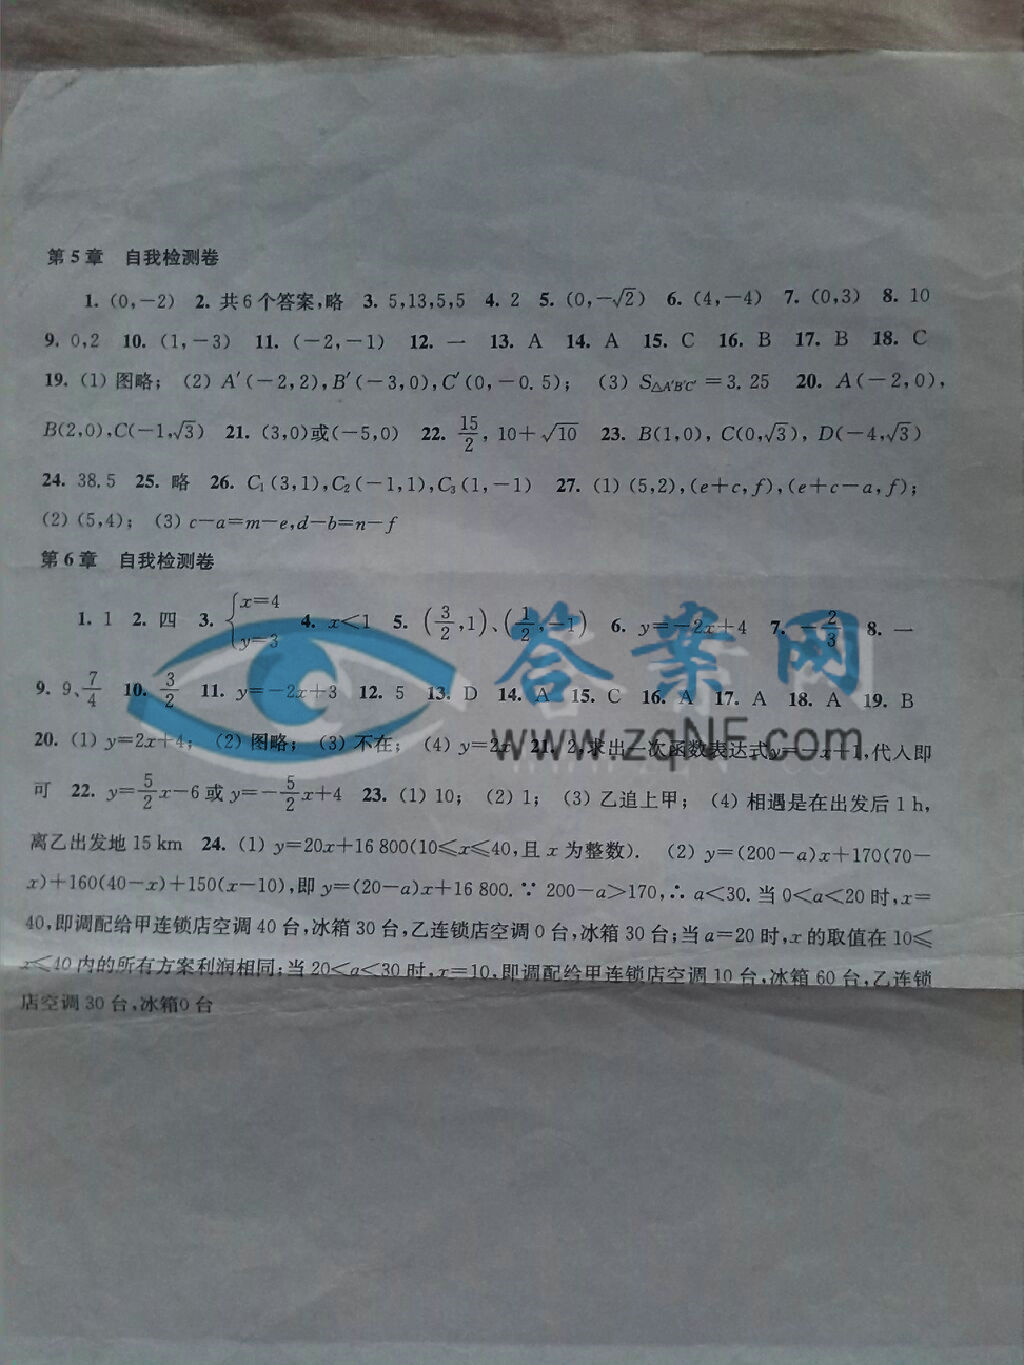 第5章 自我检测卷
1. (0,-2) 2. 共6个答案,略 3. 5,13,5,5 4. 2 5. (0,-√2) 6. (4,-4) 7. (0,3) 8. 10
9. 0,2 10. (1,-3) 11. (-2,-1) 12. 一 13. A 14. A 15. C 16. B 17. B 18. C
19. (1) 图略; (2) A′(-2,2),B′(-3,0),C′(0,-0.5); (3) S△A′B′C′=3.25 20. A(-2,0),
B(2,0),C(-1,√3) 21. (3,0)或(-5,0) 22. 15/2, 10+√10 23. B(1,0), C(0,√3), D(-4,√3)
24. 38.5 25. 略 26. C₁(3,1),C₂(-1,1),C₃(1,-1) 27. (1) (5,2),(e+c,f),(e+c-a,f);
(2) (5,4); (3) c-a=m-e,d-b=n-f
第6章 自我检测卷
1. 1 2. 四 3. {x=4 y=3 4. x<1 5. (3/2,1)、(1/2,-1) 6. y=-2x+4 7. -2/3 8. 一
9. 9、7/4 10. 3/2 11. y=-2x+3 12. 5 13. D 14. A 15. C 16. A 17. A 18. A 19. B
20. (1) y=2x+4; (2) 图略; (3) 不在; (4) y=2x 21. 2,求出一次函数表达式y=-x+1,代入即
可 22. y=5/2x-6或y=-5/2x+4 23. (1) 10; (2) 1; (3) 乙追上甲; (4) 相遇是在出发后1 h,
离乙出发地15 km 24. (1) y=20x+16 800(10⩽x⩽40,且x为整数). (2) y=(200-a)x+170(70-
x)+160(40-x)+150(x-10),即y=(20-a)x+16 800.∵ 200-a>170,∴ a<30.当0<a<20时,x=
40,即调配给甲连锁店空调40台,冰箱30台,乙连锁店空调0台,冰箱30台;当a=20时,x的取值在10⩽
x⩽40内的所有方案利润相同;当20<a<30时,x=10,即调配给甲连锁店空调10台,冰箱60台,乙连锁
店空调30台,冰箱0台
答案网
www.zqNF.com